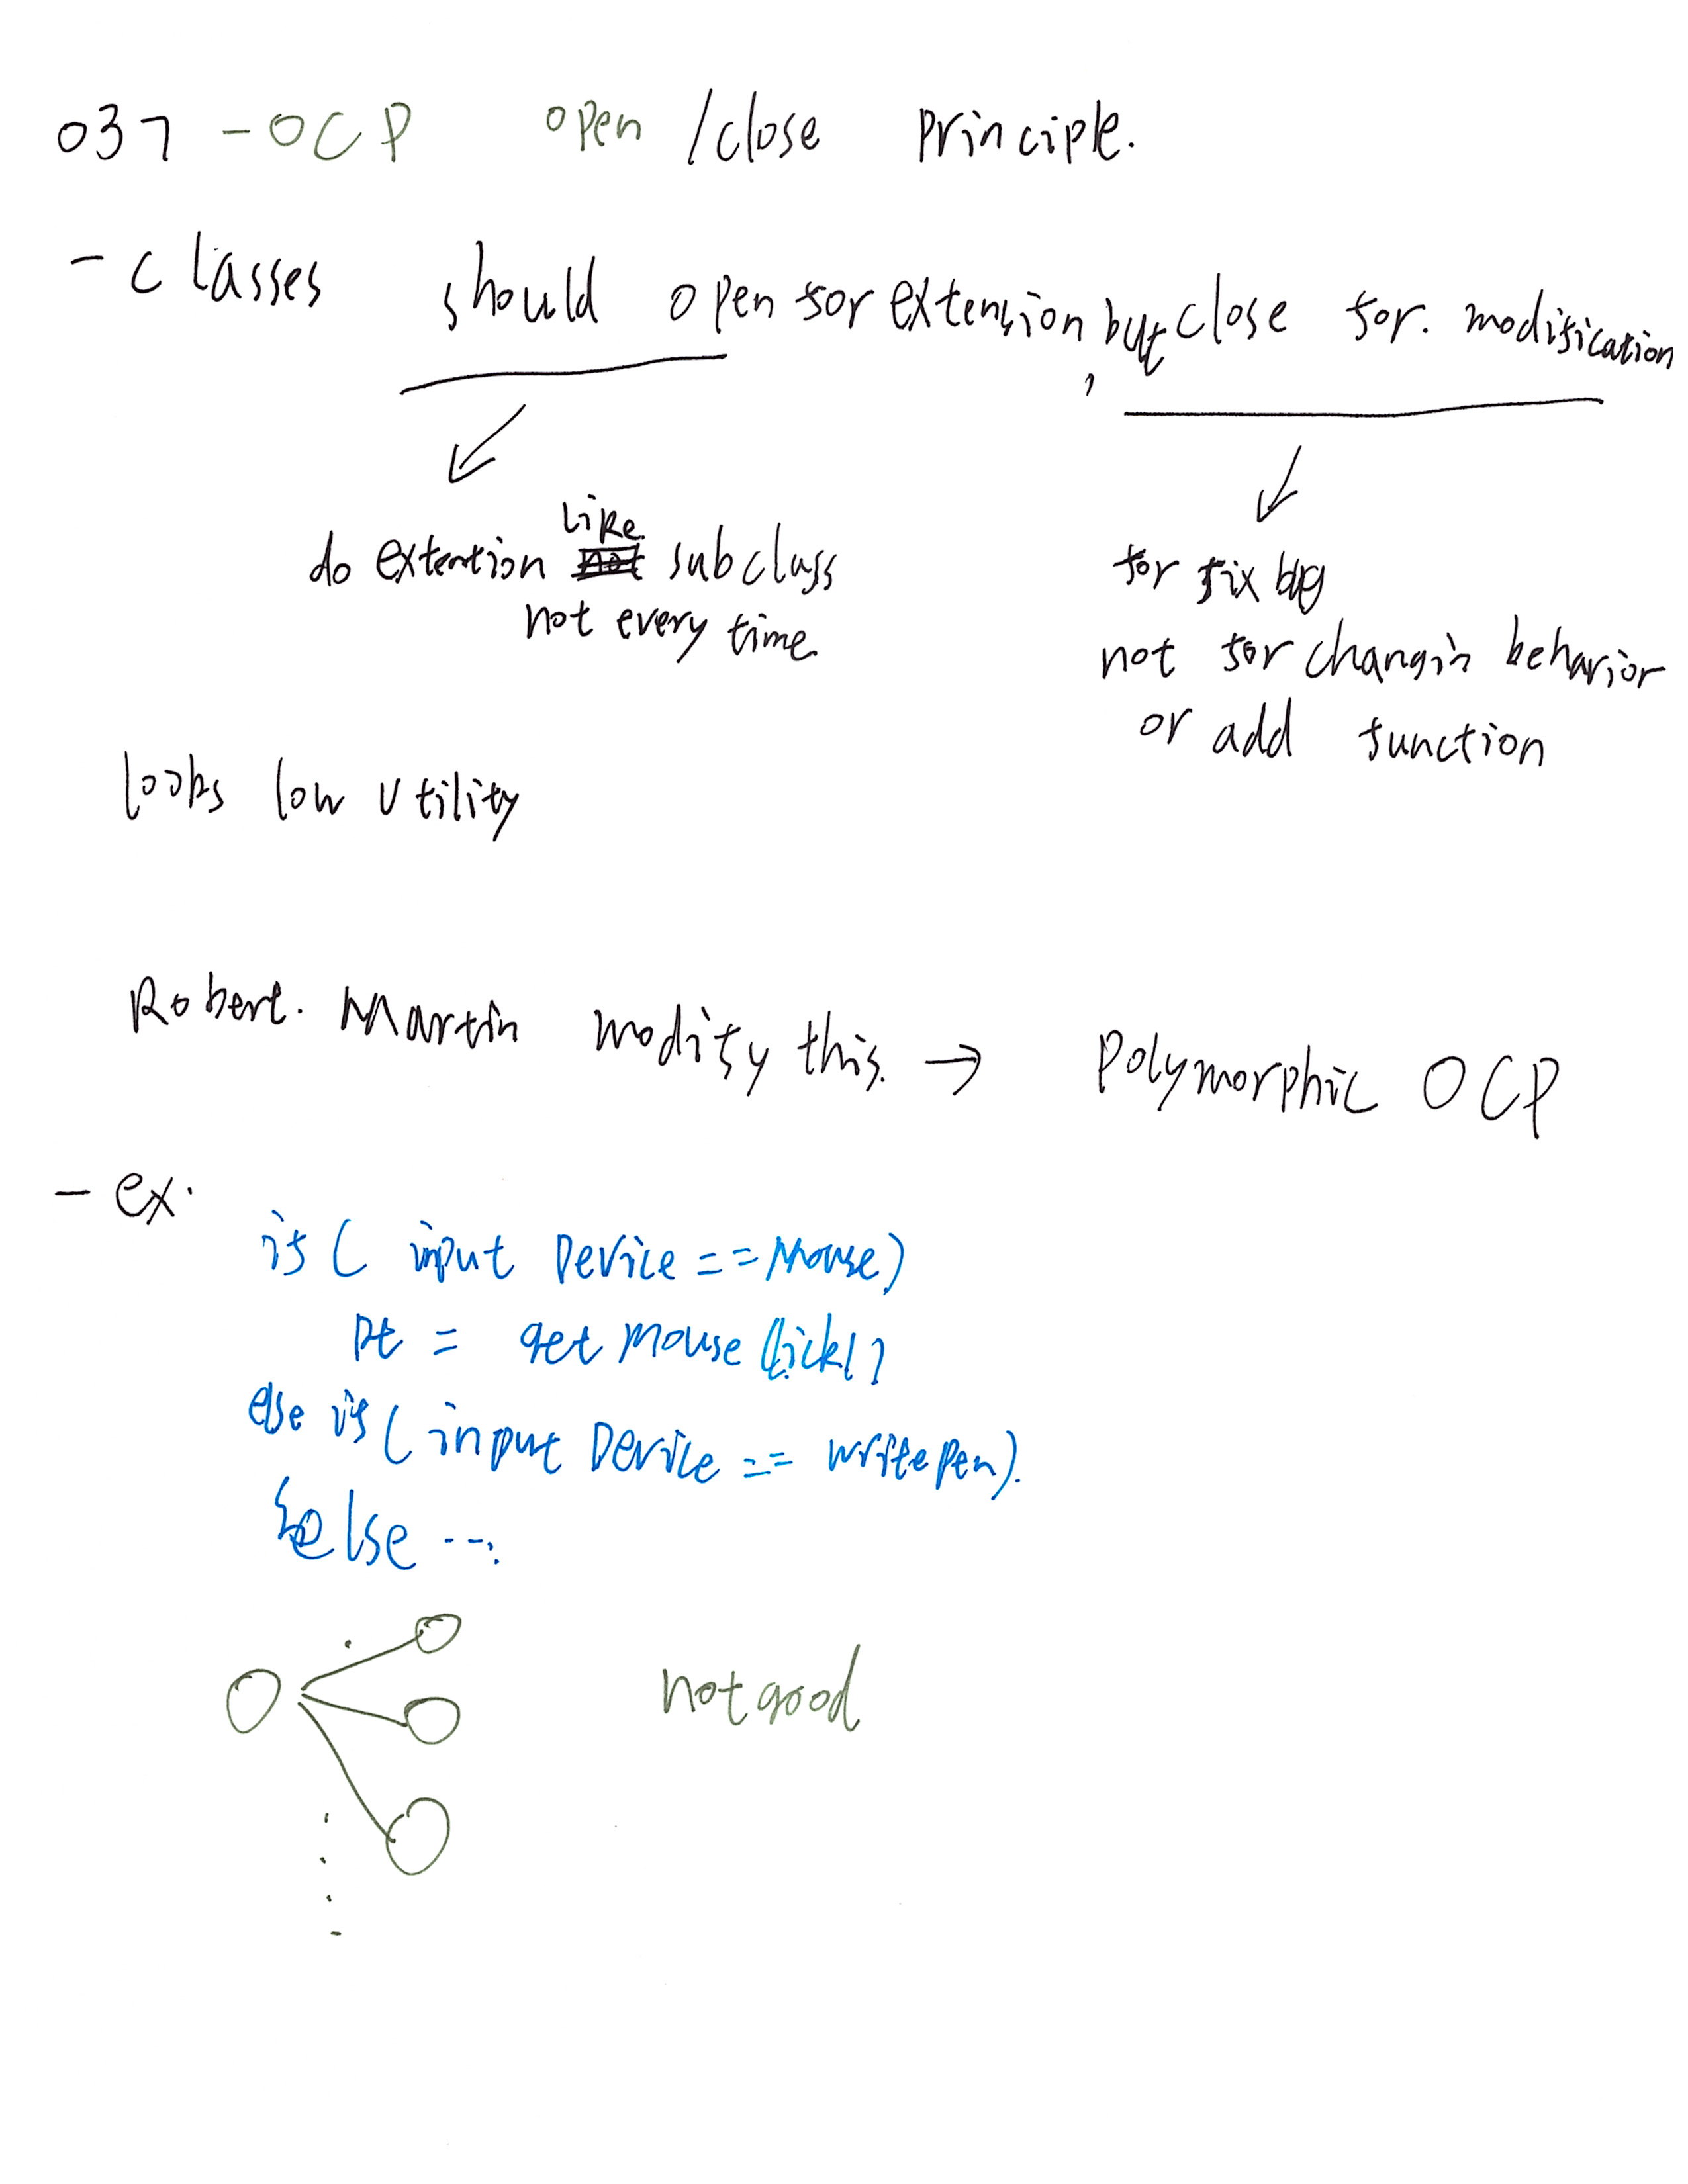 037 - OCP open /close principle.
- classes should open for extension, but close for. modification
do extention like subclass
not every time.
for fix bug
not for changin behavior
or add function
looks low utility
Robert. Martin modify this. → Polymorphic OCP
- ex.
if ( input Device == Mouse)
Pt = get Mouse Click()
else if ( input Device == writepen).
else ...
not good